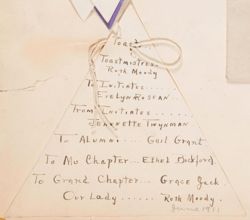 Toast...
Toastmistress
Ruth Moody
To Initiates.....
Evelyn Rosean...
From Initiates.....
Jeannette Twynman
To Alumni.... Gail Grant
To Mu Chapter... Ethel Bickford.
To Grand Chapter... Grace Jack.
Our Lady..... Ruth Moody.
June 1911